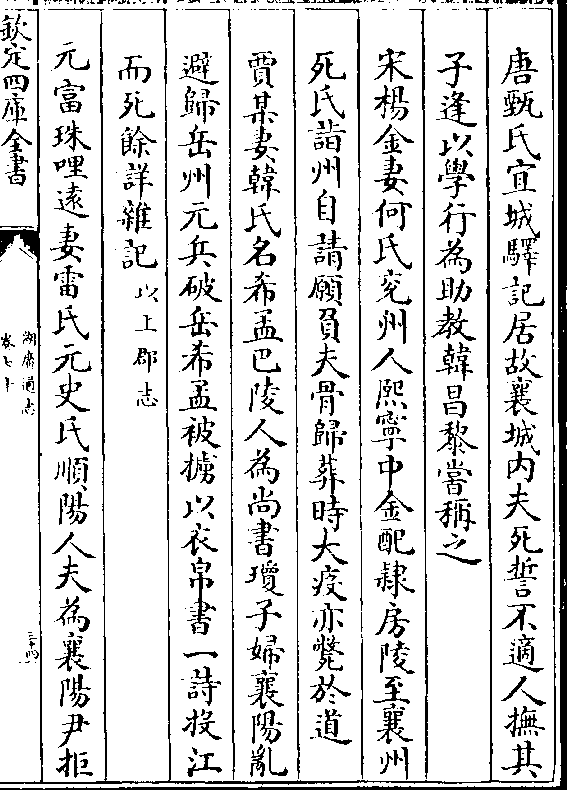 唐甄氏宜城驛記居故襄城内夫死誓不適人撫其
子逢以學行為助教韓昌黎嘗稱之
宋楊金妻何氏兖州人熙寧中金配隸房陵至襄州
死氏詣州自請願負夫骨歸葬時大疫亦斃於道
賈某妻韓氏名希孟巴陵人為尚書瓊子婦襄陽亂
避歸岳州元兵破岳希孟被擄以衣帛書一詩投江
而死餘詳雜記以上郡志
元富珠哩遠妻雷氏元史氏順陽人夫為襄陽尹拒
欽定四庫全書
湖廣通志
卷七十
三十四